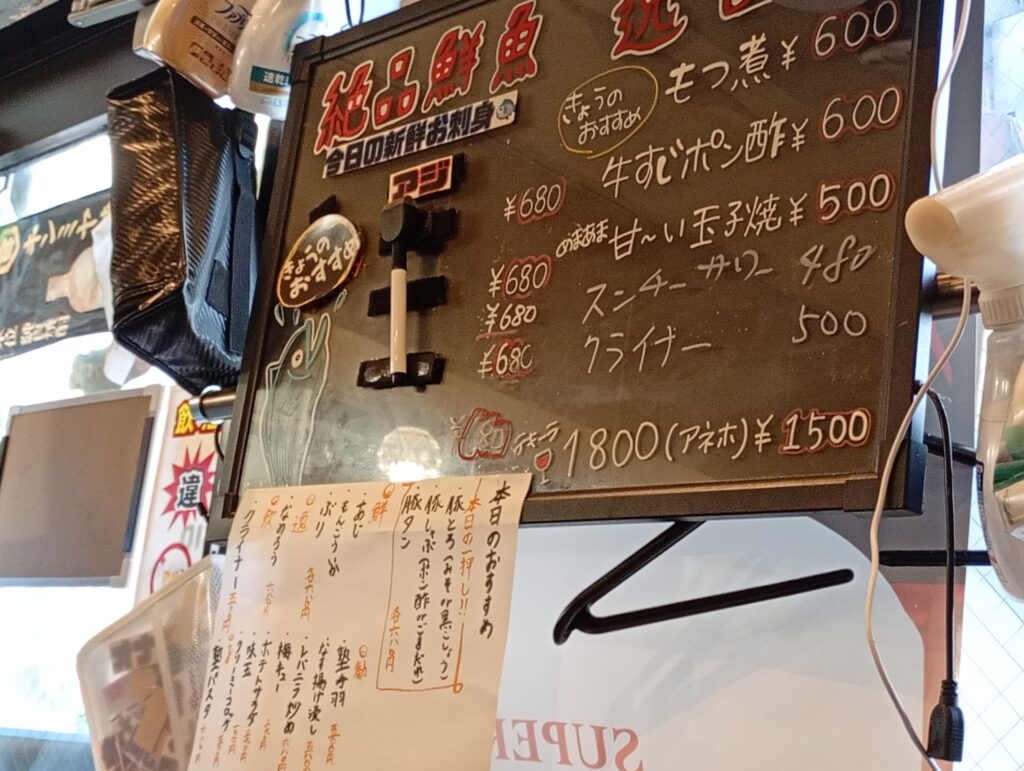 絶品鮮魚 逸品
今日の新鮮お刺身
アジ
きょうの
おすすめ
¥680
¥680
¥680
¥680
きょうの
おすすめ
もつ煮 ¥600
牛すじポン酢 ¥600
甘〜い玉子焼 ¥500
スンチーサワー 480
クライナー 500
1800(アネホ)¥1500
本日のおすすめ
・本日の一押し!!
・豚とろ(みそor黒こしょう)
・豚しゃぶ(ポン酢orごまだれ)
・豚タン 各六八〇円
鮮
・あじ
・もんごういか
・ぶり 各六八〇円
逸
・なめろう 六八〇円
飲
・クライナー 五〇〇円
勧
・塾手羽
・なす揚げ浸し
・レバニラ炒め
・梅キュー
・ポテトサラダ
・味玉
・クリーミーコロッケ
・塾パスタ
速乾
違
SUPER